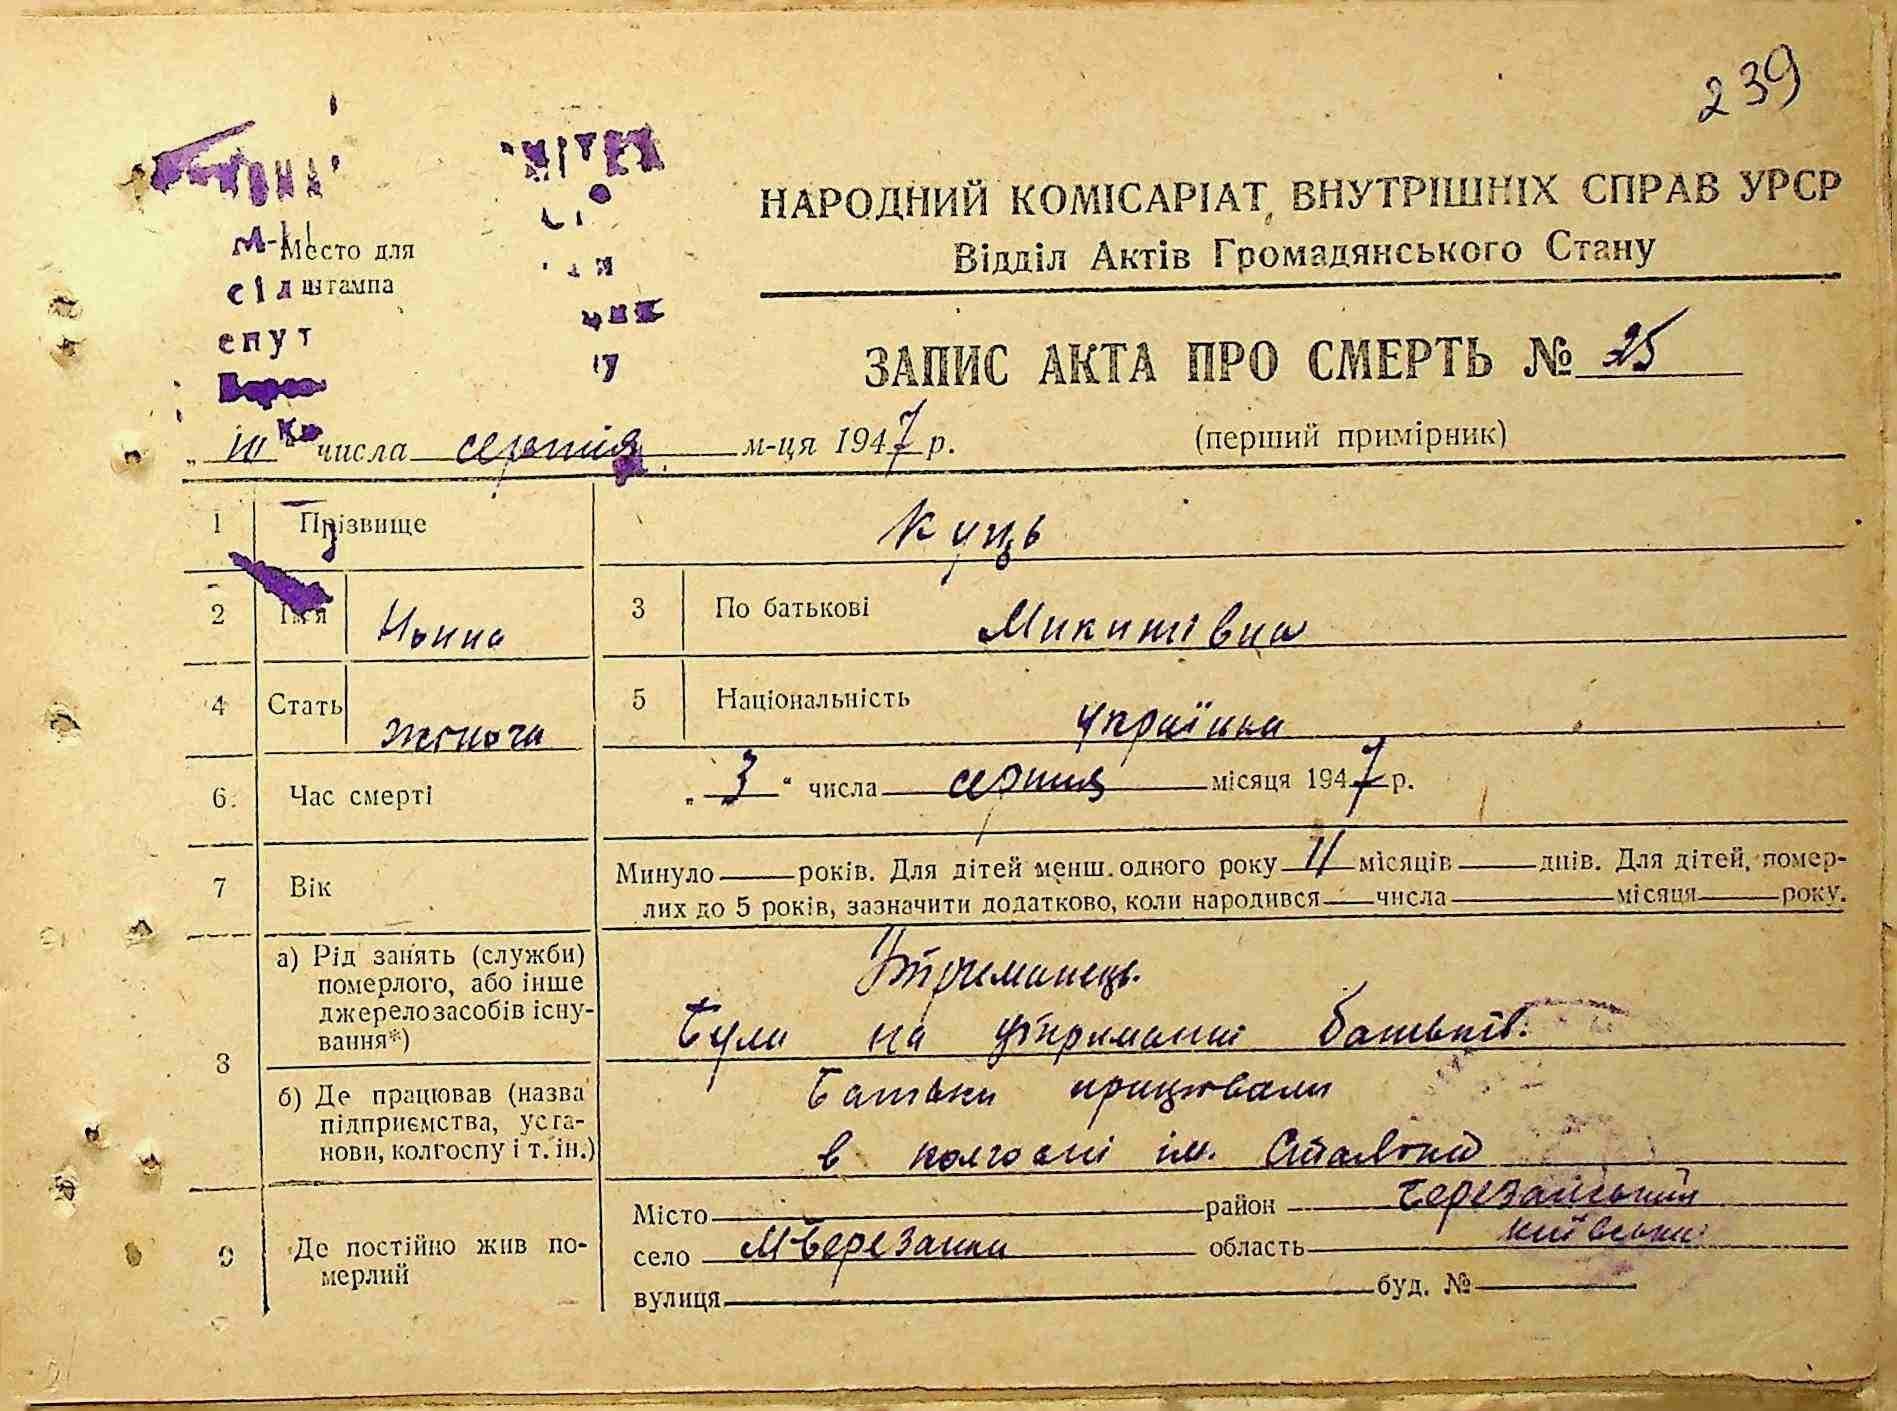 239
НАРОДНИЙ КОМІСАРІАТ ВНУТРІШНІХ СПРАВ УРСР
Відділ Актів Громадянського Стану
Место для
штампа
сіл
епут
ЗАПИС АКТА ПРО СМЕРТЬ № 25
„ 10 “ числа серпня м-ця 1947 р.
(перший примірник)
1 Прізвище Куць
2 Ім'я Нонна 3 По батькові Микитівна
4 Стать жіноча 5 Національність українка
6. Час смерті „ 3 “ числа серпня місяця 1947 р.
7 Вік Минуло років. Для дітей менш. одного року 11 місяців днів. Для дітей, помер-
лих до 5 років, зазначити додатково, коли народився числа місяця року.
8 а) Рід занять (служби)
померлого, або інше
джерело засобів існу-
вання*)
Утриманець.
Були на утриманні батьків.
б) Де працював (назва
підприємства, уста-
нови, колгоспу і т. ін.)
Батьки працювали
в колгоспі ім.
9 Де постійно жив по-
мерлий
Місто район Березанський
село М-Березанка область київська
вулиця буд. №